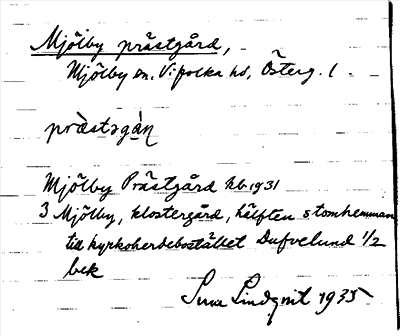 Mjölby prästgård,
Mjölby sn. Vifolka hd, Österg. l.
præ̀stəgáɳ
Mjölby Prästgård kb 1931
3 Mjölby, klostergård, hälften stomhemman
till kyrkoherdebostället Dufvelund 1/2
bek
Sune Lindqvist 1935